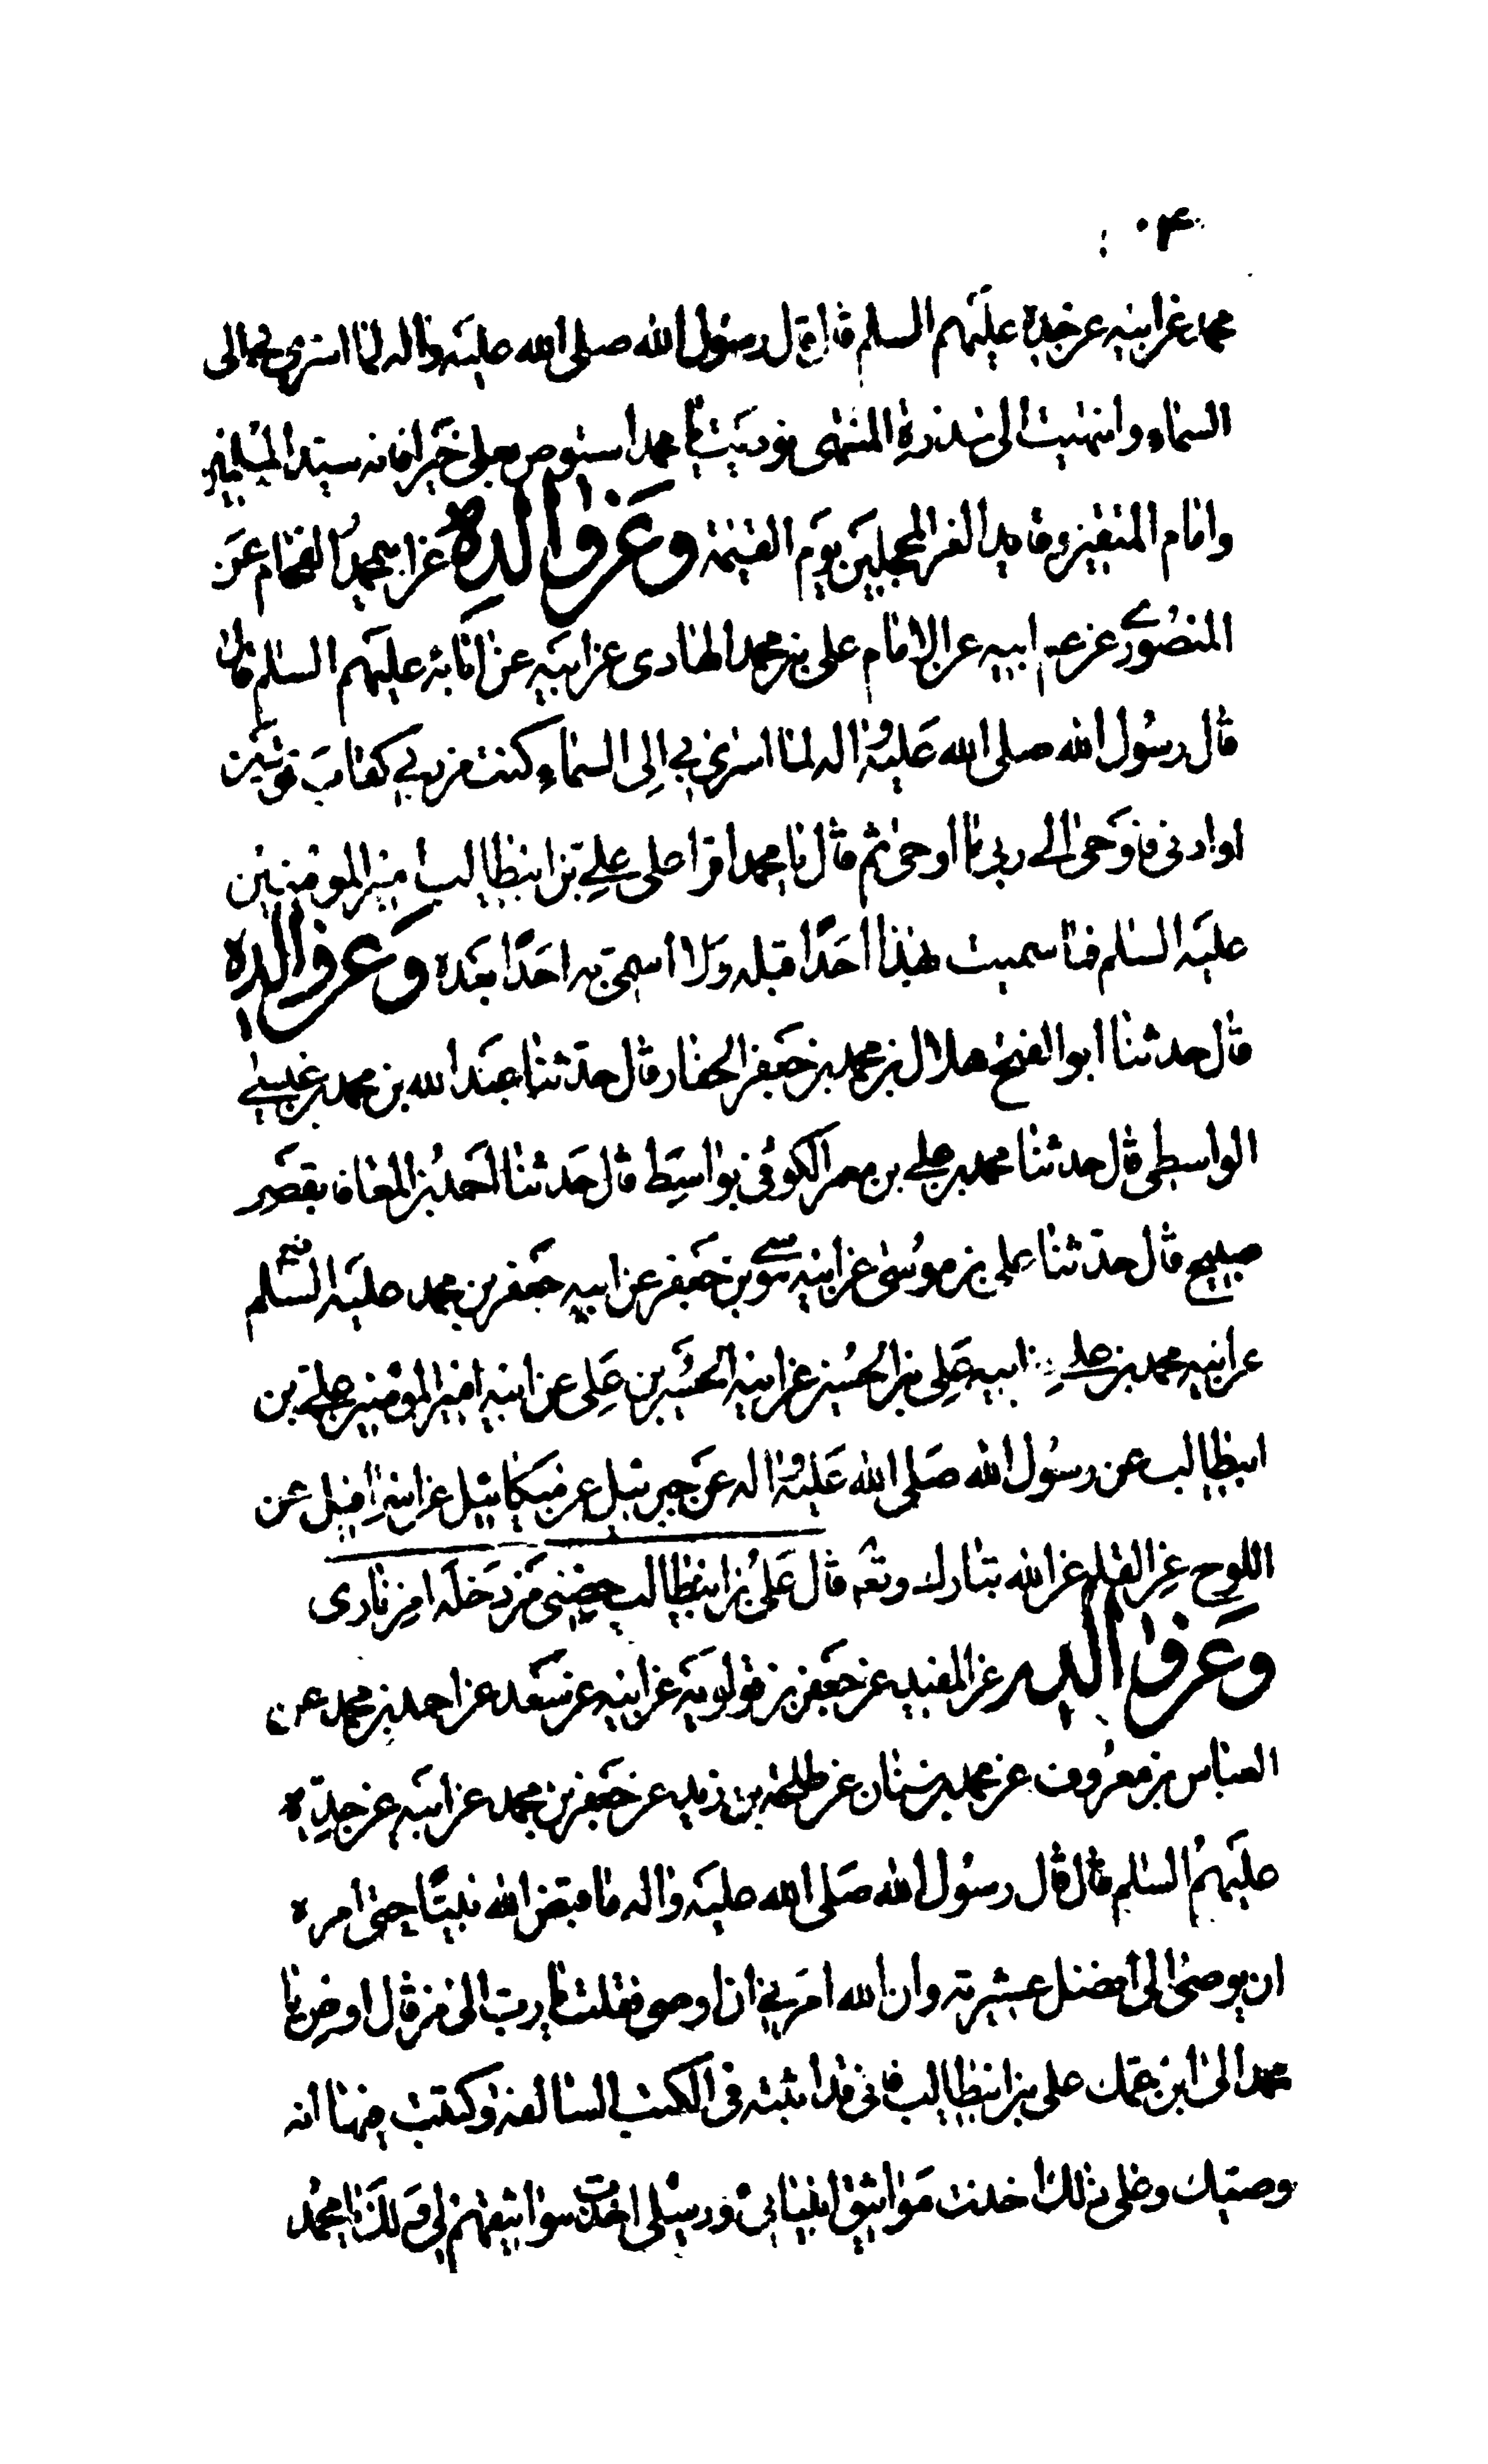 ۰۴
محمد عن ابيه عن جده عليهم السلم قال قال رسول الله صلى الله عليه واله لما اسرى بى الى
السماء وانتهيت الى سدرة المنتهى نوديت يا محمد استوص بعلى خيرا فانه سيد المسلمين
وامام المتقين وقايد الغر المحجلين يوم القيمة وعن والده عن ابى محمد الفحام عن
المنصورى عن عم ابيه عن الامام على بن محمد الهادى عن ابيه عن ابائه عليهم السلم قال
قال رسول الله صلى الله عليه واله لما اسرى بى الى السماء كنت من ربى كقاب قوسين
او ادنى فاوحى الى ربى ما اوحى ثم قال يا محمد اقرا على على بن ابيطالب امير المؤمنين
عليه السلم فما سميت بهذا احدا قبله ولا اسمى به احدا بعده وعن والده
قال حدثنا ابو الفتح هلال بن محمد بن جعفر الحفار قال حدثنا عبد الله بن محمد بن عيسى
الواسطى قال حدثنا محمد بن على بن معمر الكوفى بواسط قال حدثنا احمد بن المعافا بقصر
صبيح قال حدثنا على بن موسى عن ابيه موسى بن جعفر عن ابيه جعفر بن محمد عليه السلم
عن ابيه محمد بن على ابيه على بن الحسين عن ابيه الحسين بن على عن ابيه امير المؤمنين على بن
ابيطالب عن رسول الله صلى الله عليه واله عن جبرئيل عن ميكائيل عن اسرافيل عن
اللوح عن القلم عن الله تبارك وتعه قال على بن ابيطالب حصنى من دخله امن نارى
وعن والده عن المفيد عن جعفر بن قولويه عن ابيه عن سعد عن احمد بن محمد عن
العباس بن معروف عن محمد بن سنان عن طلحة بن زيد عن جعفر بن محمد عن ابيه عن جده
عليهم السلم قال قال رسول الله صلى الله عليه واله ما قبض الله نبيا حتى امره
ان يوصى الى افضل عشيرته وان الله امرنى ان اوصى فقلت يا رب الى من قال اوص يا
محمد الى ابن عمك على بن ابيطالب فانى قد اثبته فى الكتب السالفة وكتبت فيها انه
وصيك وعلى ذلك اخذت مواثيق انبيائى ورسلى اخذت مواثيقهم لى ولك يا محمد